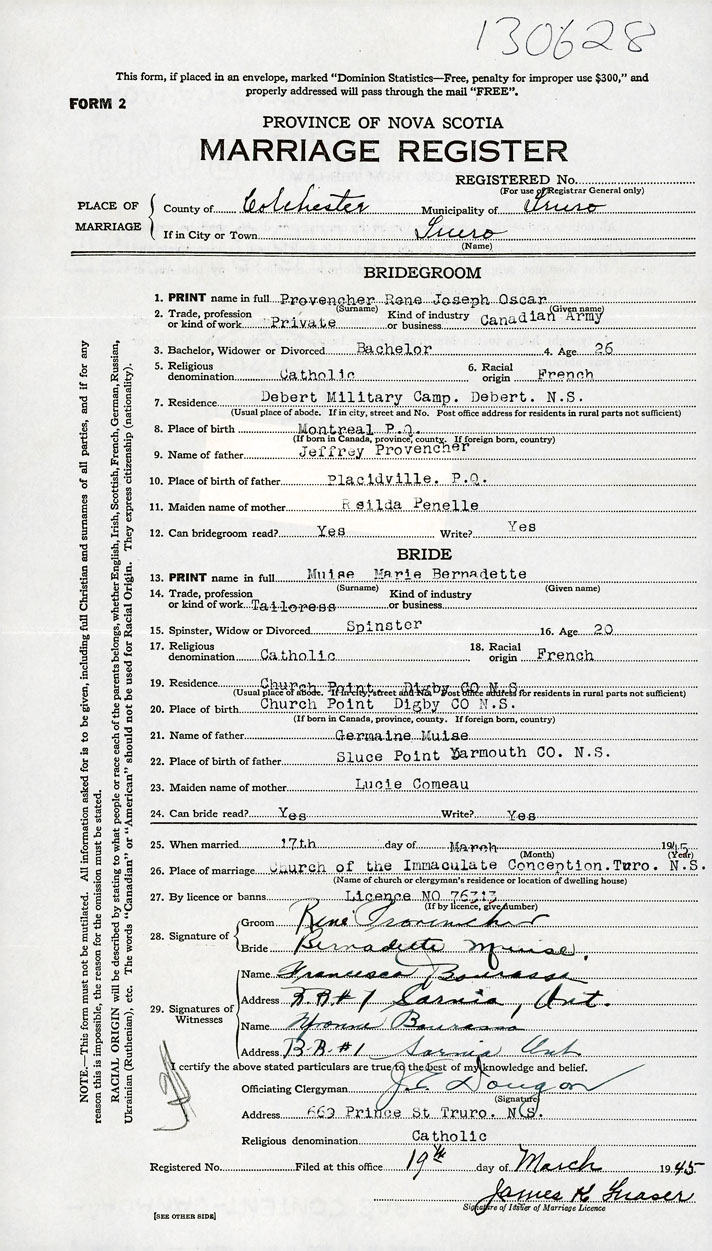 130628
This form, if placed in an envelope, marked "Dominion Statistics—Free, penalty for improper use $300," and
properly addressed will pass through the mail "FREE".
FORM 2
PROVINCE OF NOVA SCOTIA
MARRIAGE REGISTER
REGISTERED No.
(For use of Registrar General only)
PLACE OF MARRIAGE
County of Colchester Municipality of Truro
If in City or Town Truro
(Name)
BRIDEGROOM
1. PRINT name in full Provencher Rene Joseph Oscar
(Surname) (Given name)
2. Trade, profession or kind of work Private Kind of industry or business Canadian Army
3. Bachelor, Widower or Divorced Bachelor 4. Age 26
5. Religious denomination Catholic 6. Racial origin French
7. Residence Debert Military Camp. Debert. N.S.
(Usual place of abode. If in city, street and No. Post office address for residents in rural parts not sufficient)
8. Place of birth Montreal P.Q.
(If born in Canada, province, county. If foreign born, country)
9. Name of father Jeffrey Provencher
10. Place of birth of father Placidville. P.Q.
11. Maiden name of mother Penelle
12. Can bridegroom read? Yes Write? Yes
BRIDE
13. PRINT name in full Muise Marie Bernadette
(Surname) (Given name)
14. Trade, profession or kind of work Tailoress Kind of industry or business
15. Spinster, Widow or Divorced Spinster 16. Age 20
17. Religious denomination Catholic 18. Racial origin French
19. Residence Church Point Digby CO N.S.
(Usual place of abode. If in city, street and No. Post office address for residents in rural parts not sufficient)
20. Place of birth Church Point Digby CO N.S.
(If born in Canada, province, county. If foreign born, country)
21. Name of father Germaine Muise
22. Place of birth of father Sluce Point Yarmouth CO. N.S.
23. Maiden name of mother Lucie Comeau
24. Can bride read? Yes Write? Yes
25. When married 17th day of March 1945
(Month) (Year)
26. Place of marriage Church of the Immaculate Conception.Turo. N.S.
(Name of church or clergyman's residence or location of dwelling house)
27. By licence or banns Licence NO 76313
(If by licence, give number)
28. Signature of
Groom Rene Provencher
Bride Bernadette Muise.
29. Signatures of Witnesses
Name Francesca Bourassa
Address R.R.#1 Sarnia, Ont.
Name Yvonne Bourassa
Address R.R.#1 Sarnia Ont
I certify the above stated particulars are true to the best of my knowledge and belief.
Officiating Clergyman J.E.
(Signature)
Address 669 Prince St Truro. N.S.
Religious denomination Catholic
Registered No. Filed at this office 19th day of March 1945
James K Fraser
Signature of Issuer of Marriage Licence
[SEE OTHER SIDE]
NOTE.—This form must not be mutilated. All information asked for is to be given, including full Christian and surnames of all parties, and if for any
reason this is impossible, the reason for the omission must be stated.
RACIAL ORIGIN will be described by stating to what people or race each of the parents belongs, whether English, Irish, Scottish, French, German, Russian,
Ukrainian (Ruthenian), etc. The words "Canadian" or "American" should not be used for Racial Origin. They express citizenship (nationality).